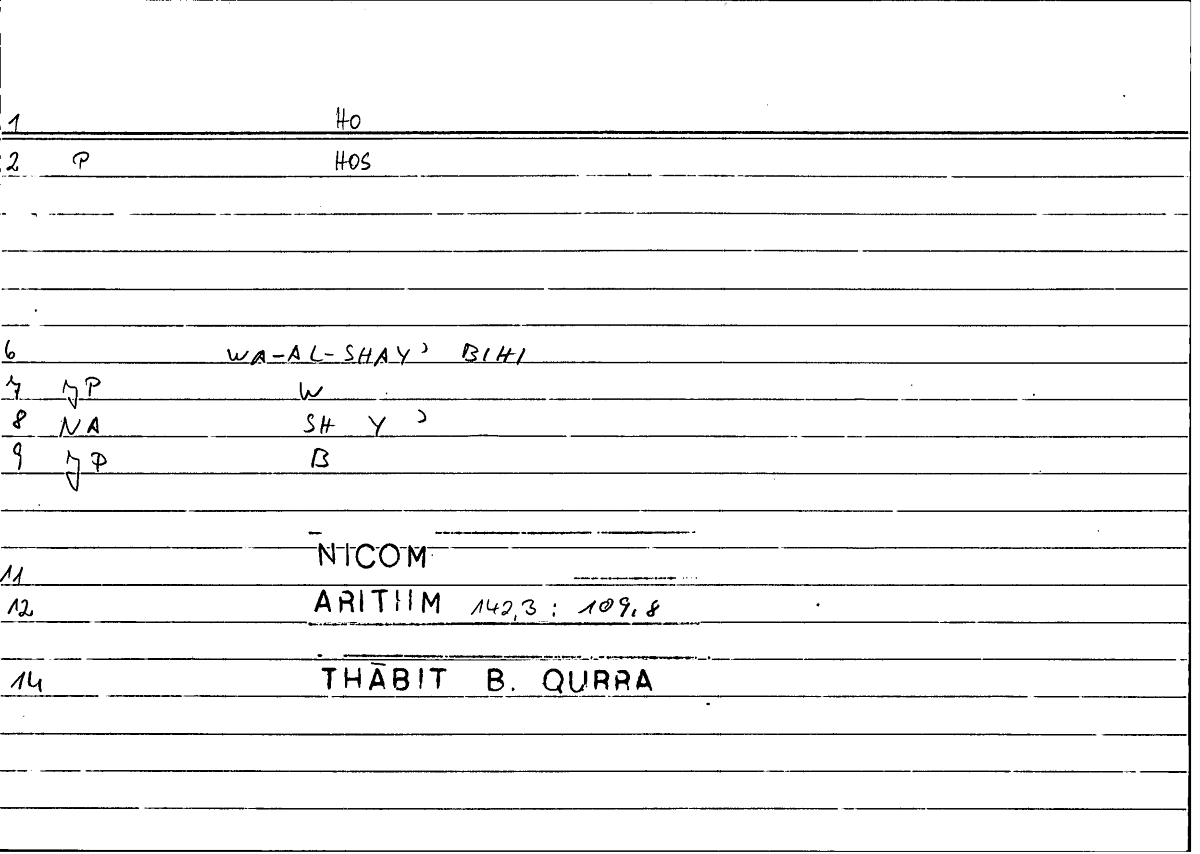 1 HO
2 P HOS
6 WA-AL-SHAYʾ BIHI
7 JP W
8 NA SH Y ʾ
9 JP B
11 NICOM
12 ARITHM 142,3 : 109,8
14 THĀBIT B. QURRA